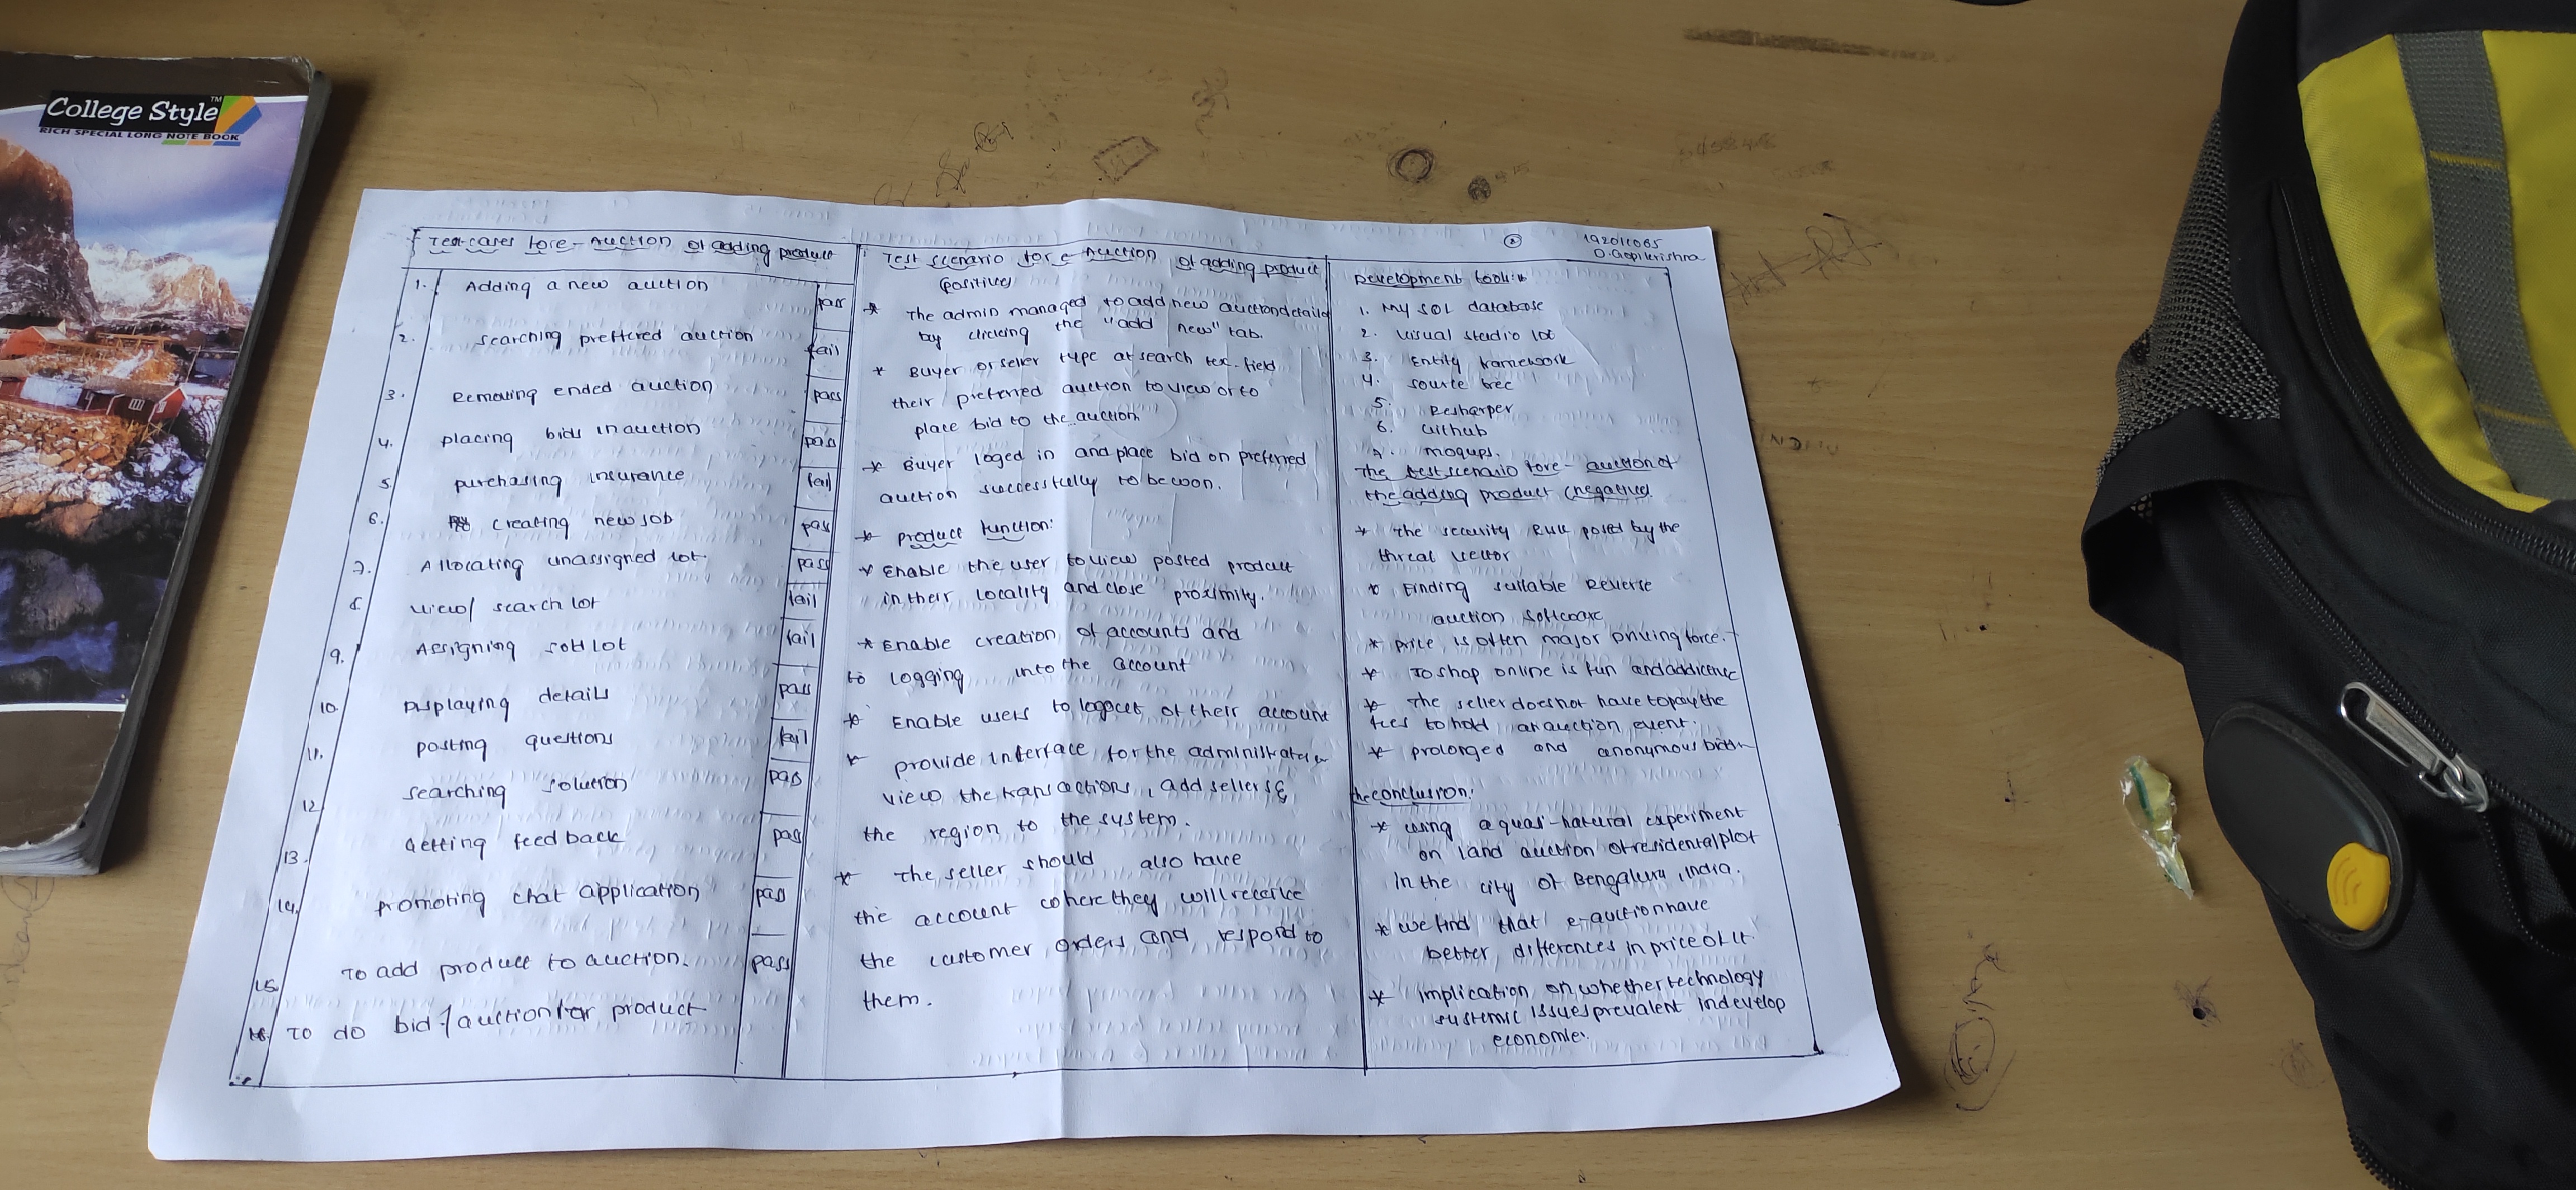 College Style™
RICH SPECIAL LONG NOTE BOOK
②
D. Gopi krishna
Test cases for e-auction of adding product
1. Adding a new auction pass
2. searching preffered auction fail
3. Removing ended auction pass
4. placing bids in auction pass
5. purchasing insurance fail
6. creating new job pass
7. Allocating unassigned lot pass
8. view/search lot fail
9. Assigning sott lot fail
10. Displaying details pass
11. posting questions fail
12. searching solution pass
13. Getting feedback pass
14. promoting chat application pass
15. To add product to auction. pass
16. To do bid/auction for product
Test scenario for e-auction of adding product
(positive)
* The admin managed to add new auction details
by clicking the "add new" tab.
* Buyer or seller type at search tex-field
their preferred auction to view or to
place bid to the auction
* Buyer loged in and place bid on preferred
auction successfully to be won.
* product function:
* Enable the user to view posted product
in their locality and close proximity.
* Enable creation of accounts and
to logging into the account
* Enable users to logout of their account
* provide interface for the administrator
view the transactions, add sellers &
the region to the system.
* The seller should also have
the account where they will receive
the customer orders and respond to
them.
Development tools:-
1. My SQL database
2. visual studio
3. Entity framework
4. source tree
5. Resharper
6. Github
7. moqups.
The test scenario for e-auction of
the adding product (negative)
* The security Rule posed by the
threat vector
* Finding suitable Reverse
auction software
* price is often major driving force.
* To shop online is fun and addictive
* The seller does not have to pay the
fees to hold an auction event.
* prolonged and anonymous
The conclusion:
* using a quasi-natural experiment
on land auction of residental plot
in the city of Bengalura, India.
* we find that e-auction have
better differences in price of it.
* Implication on whether technology
systemic issues prevalent in develop
economies.